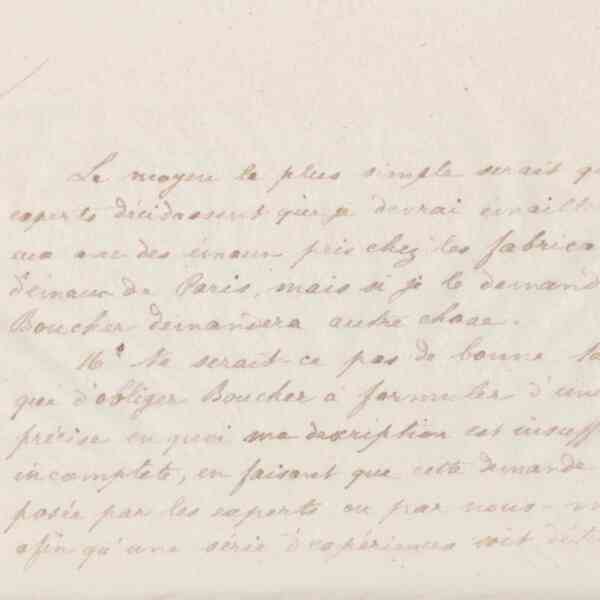 Le moyen le plus simple serait
experts décidassent que je devrai émaill
avec des émaux pris chez les fabrica
d'émaux de Paris, mais si je le demand
Boucher demandera autre chose.
16° Ne serait-ce pas de bonne
que d'obliger Boucher à formuler d'un
précise en quoi ma description est insuff
incomplète, en faisant que cette demande
posée par les experts ou par nous-m
afin qu'une série d'expériences soit